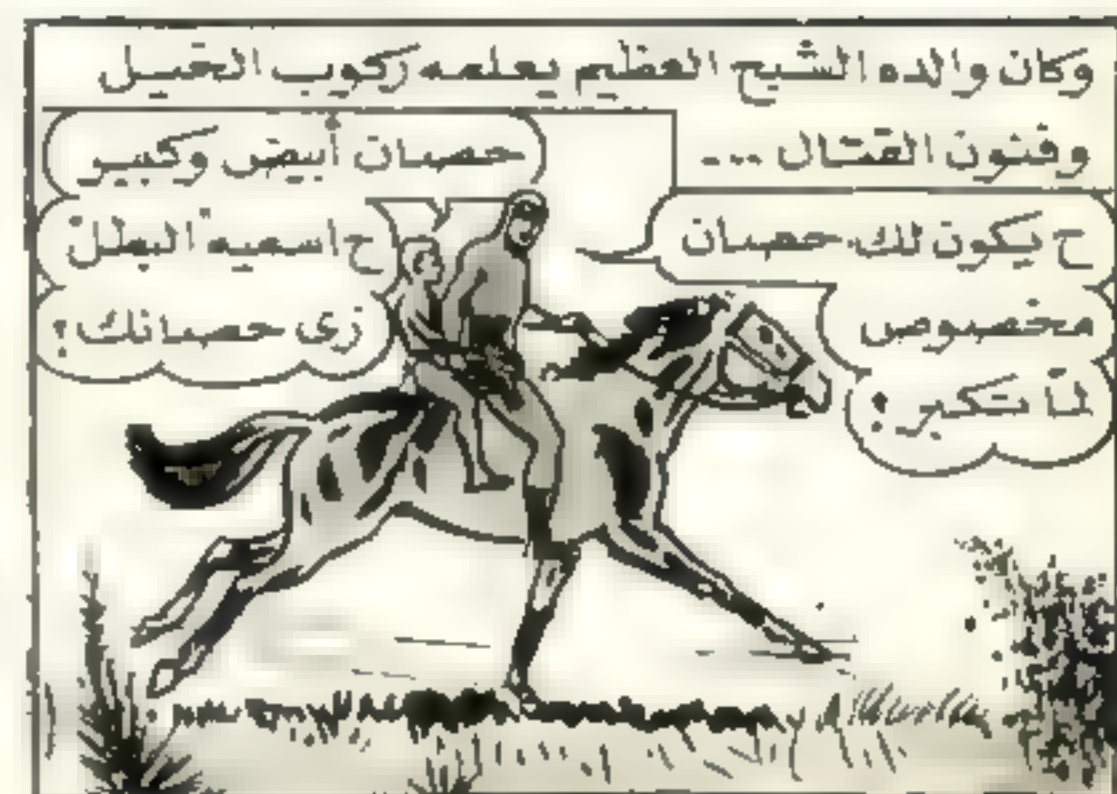 وكان والده الشبح العظيم يعلمه ركوب الخيل
وفنون القتال ...
ح يكون لك حصان
مخصوص
لما تكبر !
حصان أبيض وكبير
ح اسميه البطل
زى حصانك ؟